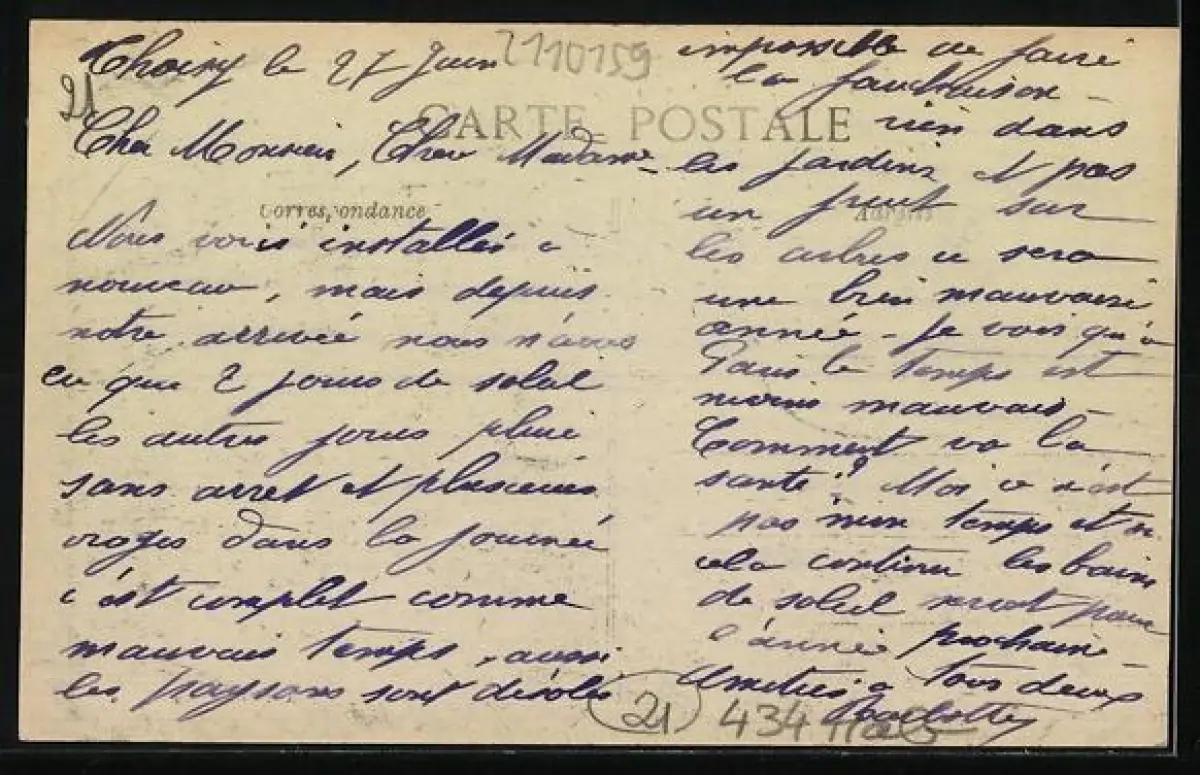 Choisy le 27 Juin
2110159
21
CARTE POSTALE
Cher Monsieur, Chère Madame
Correspondance
Nous voici installés à
nouveau, mais depuis
notre arrivée nous n'avons
eu que 2 jours de soleil
les autres jours pluie
sans arret et plusieurs
orages dans la journée
c'est complet comme
mauvais temps, aussi
les paysans sont désolés
impossible de faire
la fauchaison -
rien dans
les jardins et pas
un fruit sur
les arbres ce sera
une bien mauvaise
année - Je vois qu'à
Paris le temps est
moins mauvais -
Comment va la
santé? Moi ce n'est
pas mon temps et si
cela continue les bains
de soleil seront pour
l'année prochaine -
Amitiés à tous deux
21 434